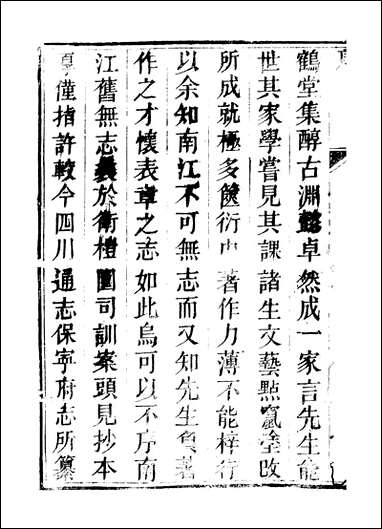 鶴堂集醇古淵懿卓然成一家言先生能
世其家學嘗見其課諸生文藝點竄塗改
所成就極多篋衍中著作力薄不能梓行
以余知南江不可無志而又知先生負著
作之才懷表章之志如此烏可以不序南
江舊無志曩於衛檀園司訓案頭見抄本
草僅指許較今四川通志保寧府志所纂